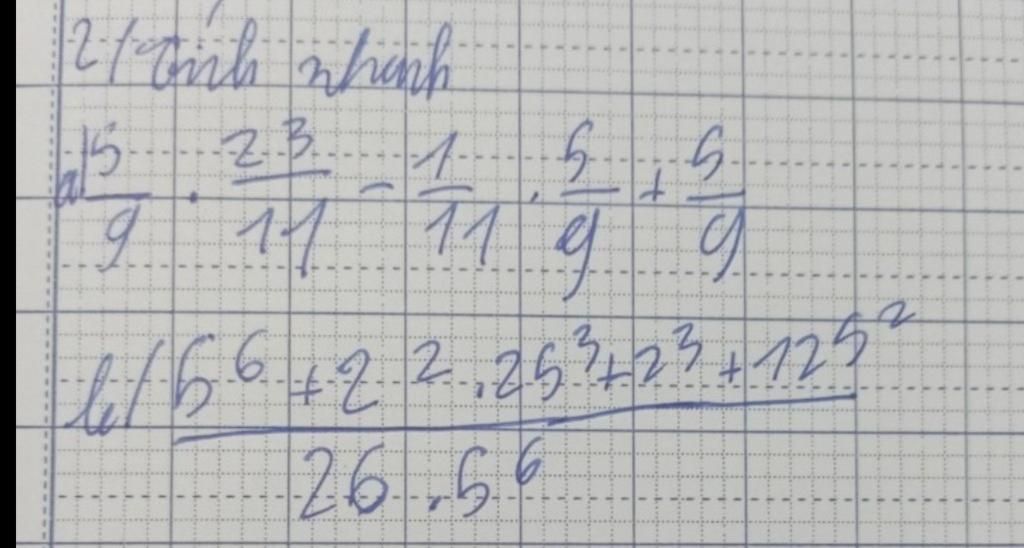 2/ Tính nhanh
a) 5/9 . 23/11 - 1/11 . 5/9 + 5/9
b/ (5⁶ + 2² . 25³ + 2³ + 125²) / (26 . 5⁶)